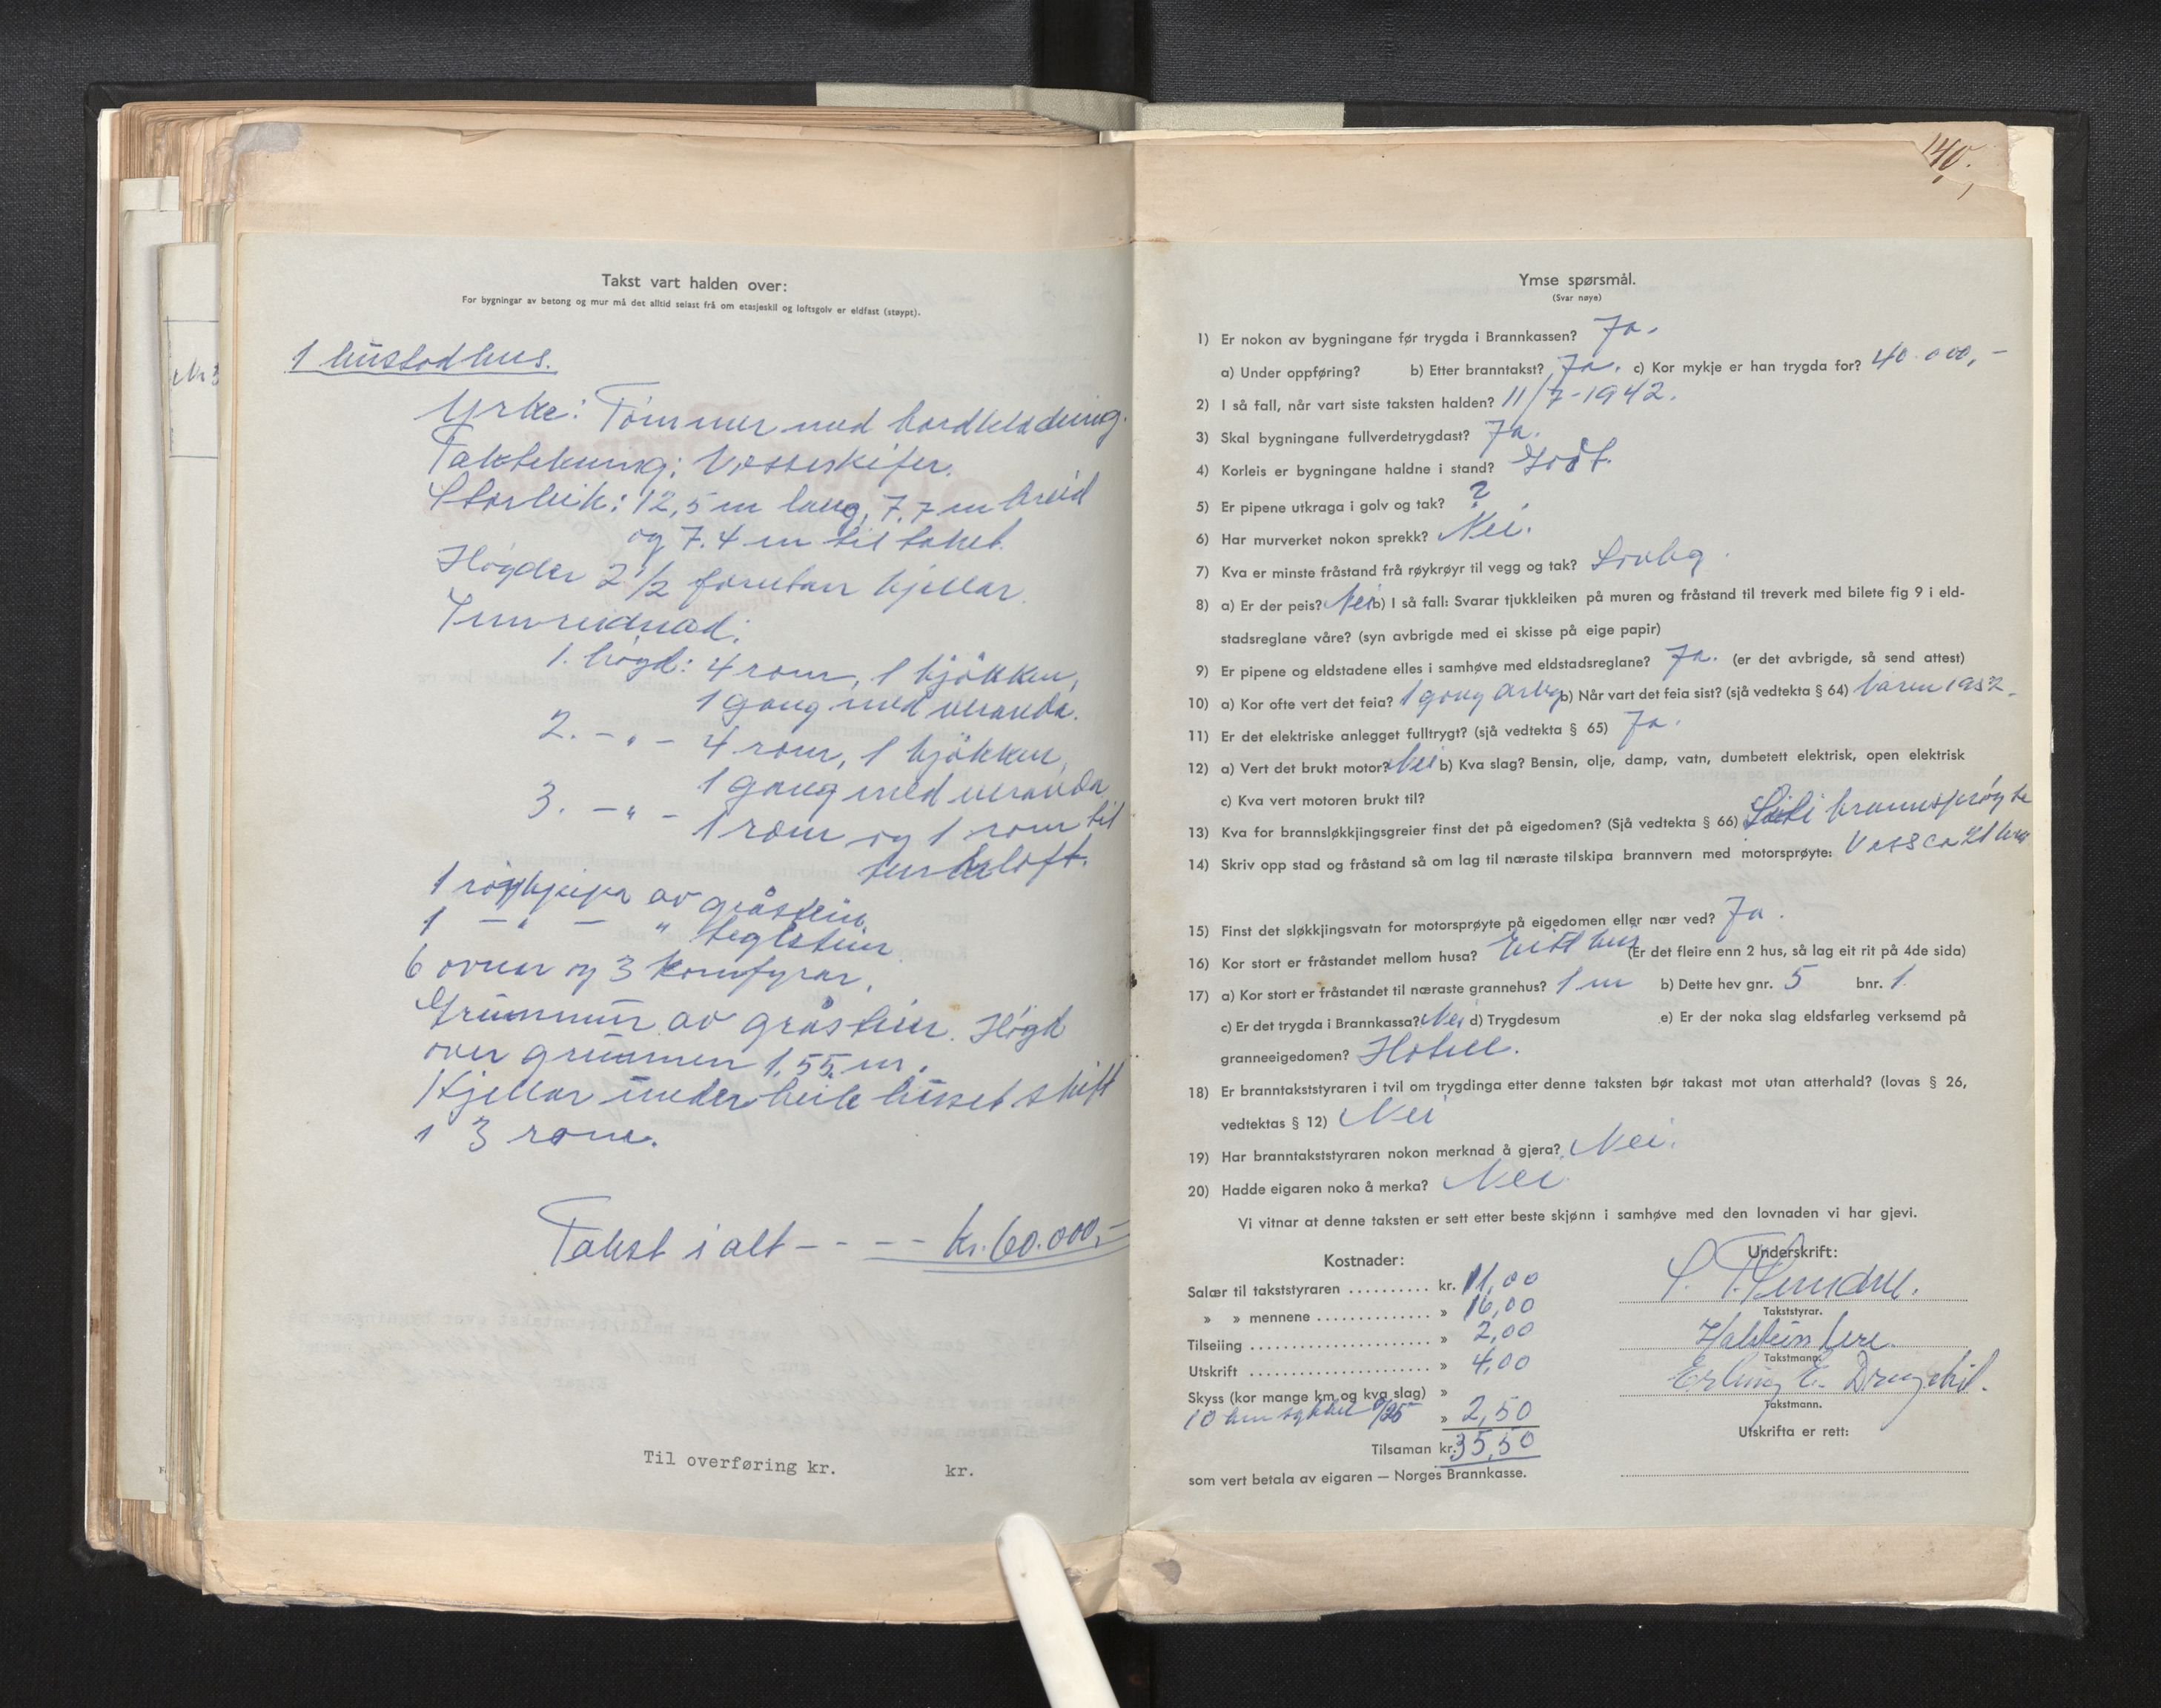 Takst vart halden over:
For bygningar av betong og mur må det alltid seiast frå om etasjeskil og loftsgolv er eldfast (støypt).
1 hústodhus.
Yrke: Tømmer med bordkledning.
Taktekning: Vosseskifer.
Storleik: 12,5 m lang, 7,7 m breid
og 7.4 m til taket.
Høgder 2 1/2 foruten kjellar.
Innreidnad:
1. høgd: 4 rom, 1 kjøkken,
1 gang med veranda.
2. – „ – 4 rom, 1 kjøkken,
1 gang med veranda
3. – „ – 1 rom og 1 rom til
loft.
1 røykpipa av gråstein.
1 – „ – „ teglstein
6 ovner og 3 komfyrar.
Grunnmur av gråstein. Høgd
over grunnen 1,55 m.
Kjellar under heile húset skift
i 3 rom.
Takst i alt - - - - kr. 60.000,-
Til overføring kr. kr.
140.
Ymse spørsmål.
(Svar nøye)
1) Er nokon av bygningane før trygda i Brannkassen? Ja.
a) Under oppføring? b) Etter branntakst? Ja. c) Kor mykje er han trygda for? 40.000,-
2) I så fall, når vart siste taksten halden? 11/7-1942.
3) Skal bygningane fullverdetrygdast? Ja.
4) Korleis er bygningane haldne i stand? Godt.
5) Er pipene utkraga i golv og tak? ?
6) Har murverket nokon sprekk? Nei.
7) Kva er minste fråstand frå røykrøyr til vegg og tak? Lovleg.
8) a) Er der peis? Nei b) I så fall: Svarar tjukkleiken på muren og fråstand til treverk med bilete fig 9 i eld-
stadsreglane våre? (syn avbrigde med ei skisse på eige papir)
9) Er pipene og eldstadene elles i samhøve med eldstadsreglane? Ja. (er det avbrigde, så send attest)
10) a) Kor ofte vert det feia? 1 gong årleg b) Når vart det feia sist? (sjå vedtekta § 64) våren 1952.
11) Er det elektriske anlegget fulltrygt? (sjå vedtekta § 65) Ja.
12) a) Vert det brukt motor? Nei b) Kva slag? Bensin, olje, damp, vatn, dumbetett elektrisk, open elektrisk
c) Kva vert motoren brukt til?
13) Kva for brannsløkkjingsgreier finst det på eigedomen? (Sjå vedtekta § 66) brannsprøyte
14) Skriv opp stad og fråstand så om lag til næraste tilskipa brannvern med motorsprøyte: Voss ca
15) Finst det sløkkjingsvatn for motorsprøyte på eigedomen eller nær ved? Ja.
16) Kor stort er fråstandet mellom husa? Eitt hus (Er det fleire enn 2 hus, så lag eit rit på 4de sida)
17) a) Kor stort er fråstandet til næraste grannehus? 1 m b) Dette hev gnr. 5 bnr. 1.
c) Er det trygda i Brannkassa? Nei d) Trygdesum e) Er der noka slag eldsfarleg verksemd på
granneeigedomen? Hotell.
18) Er branntakststyraren i tvil om trygdinga etter denne taksten bør takast mot utan atterhald? (lovas § 26,
vedtektas § 12) Nei
19) Har branntakststyraren nokon merknad å gjera? Nei.
20) Hadde eigaren noko å merka? Nei
Vi vitnar at denne taksten er sett etter beste skjønn i samhøve med den lovnaden vi har gjevi.
Kostnader:
Salær til takststyraren .......... kr. 11,00
» » mennene .............. » 16,00
Tilseiing ...................... » 2,00
Utskrift ...................... » 4,00
Skyss (kor mange km og kva slag) »
10 km sykkel 0/25 » 2,50
Tilsaman kr. 35,50
som vert betala av eigaren — Norges Brannkasse.
Underskrift:
Takststyrar.
Takstmann.
Erling E.
Takstmann.
Utskrifta er rett: